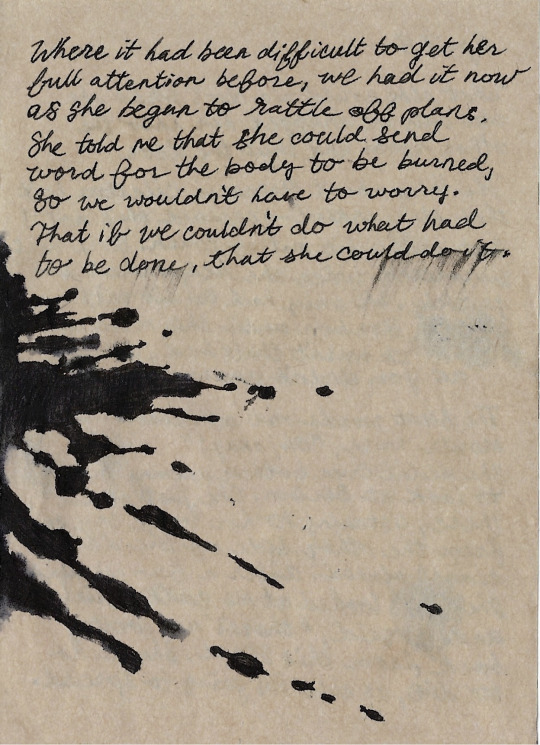 Where it had been difficult to get her
full attention before, we had it now
as she begun to rattle off plans.
She told me that she could send
word for the body to be burned,
so we wouldn't have to worry.
That if we couldn't do what had
to be done, that she could do it.